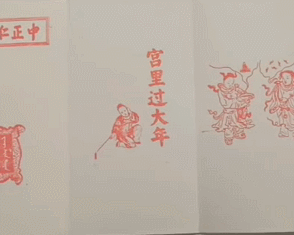 中正仁
宫里过大年